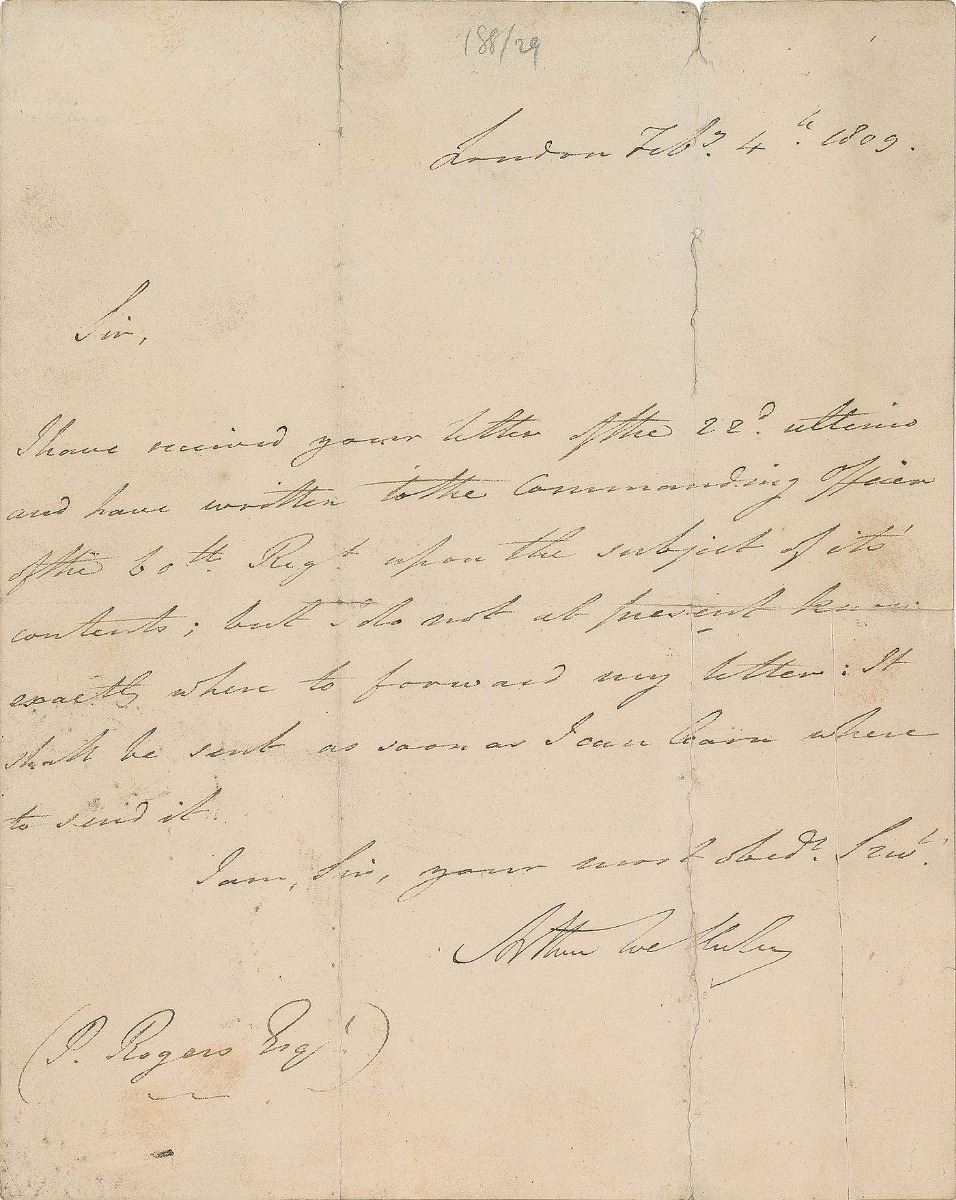 188/29
London Feby. 4th 1809.
Sir,
I have received your letter of the 22d. ultimo
and have written to the Commanding Officer
of the 60th Regt. upon the subject of it's
contents; but I do not at present know
exactly where to forward my letter: It
shall be sent as soon as I can learn where
to send it.
I am, Sir, your most obedt. Servt.
Arthur Wellesley
(P. Rogers Esqr.)